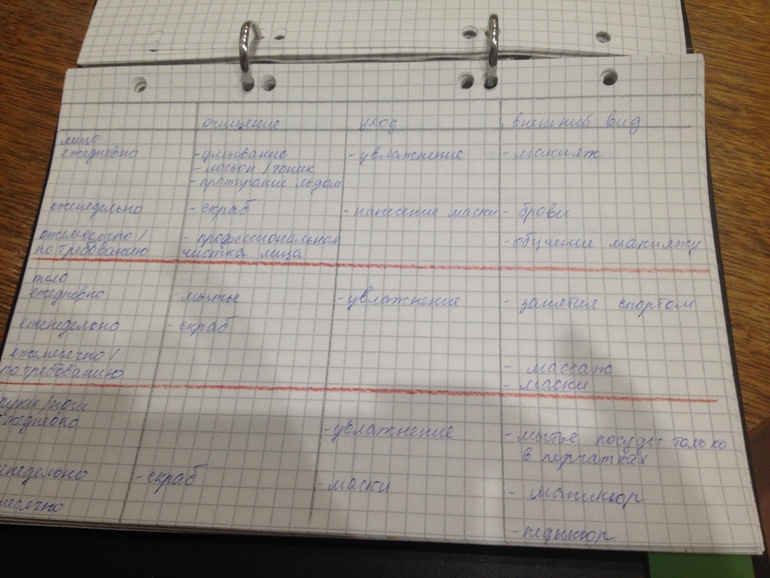 очищение уход внешний вид
лицо
ежедневно - умывание - увлажнение - макияж
- лосьон / тоник
- протирание льдом
еженедельно - скраб - нанесение маски - брови
ежемесячно / - профессиональная - обучение макияжу
по требованию чистка лица
тело
ежедневно - мытье - увлажнение - занятия спортом
еженедельно - скраб
ежемесячно / - массаж
по требованию - маски
руки / ноги
ежедневно - увлажнение - мытье посуды только
в перчатках
енедельно - скраб - маски - маникюр
месячно - педикюр